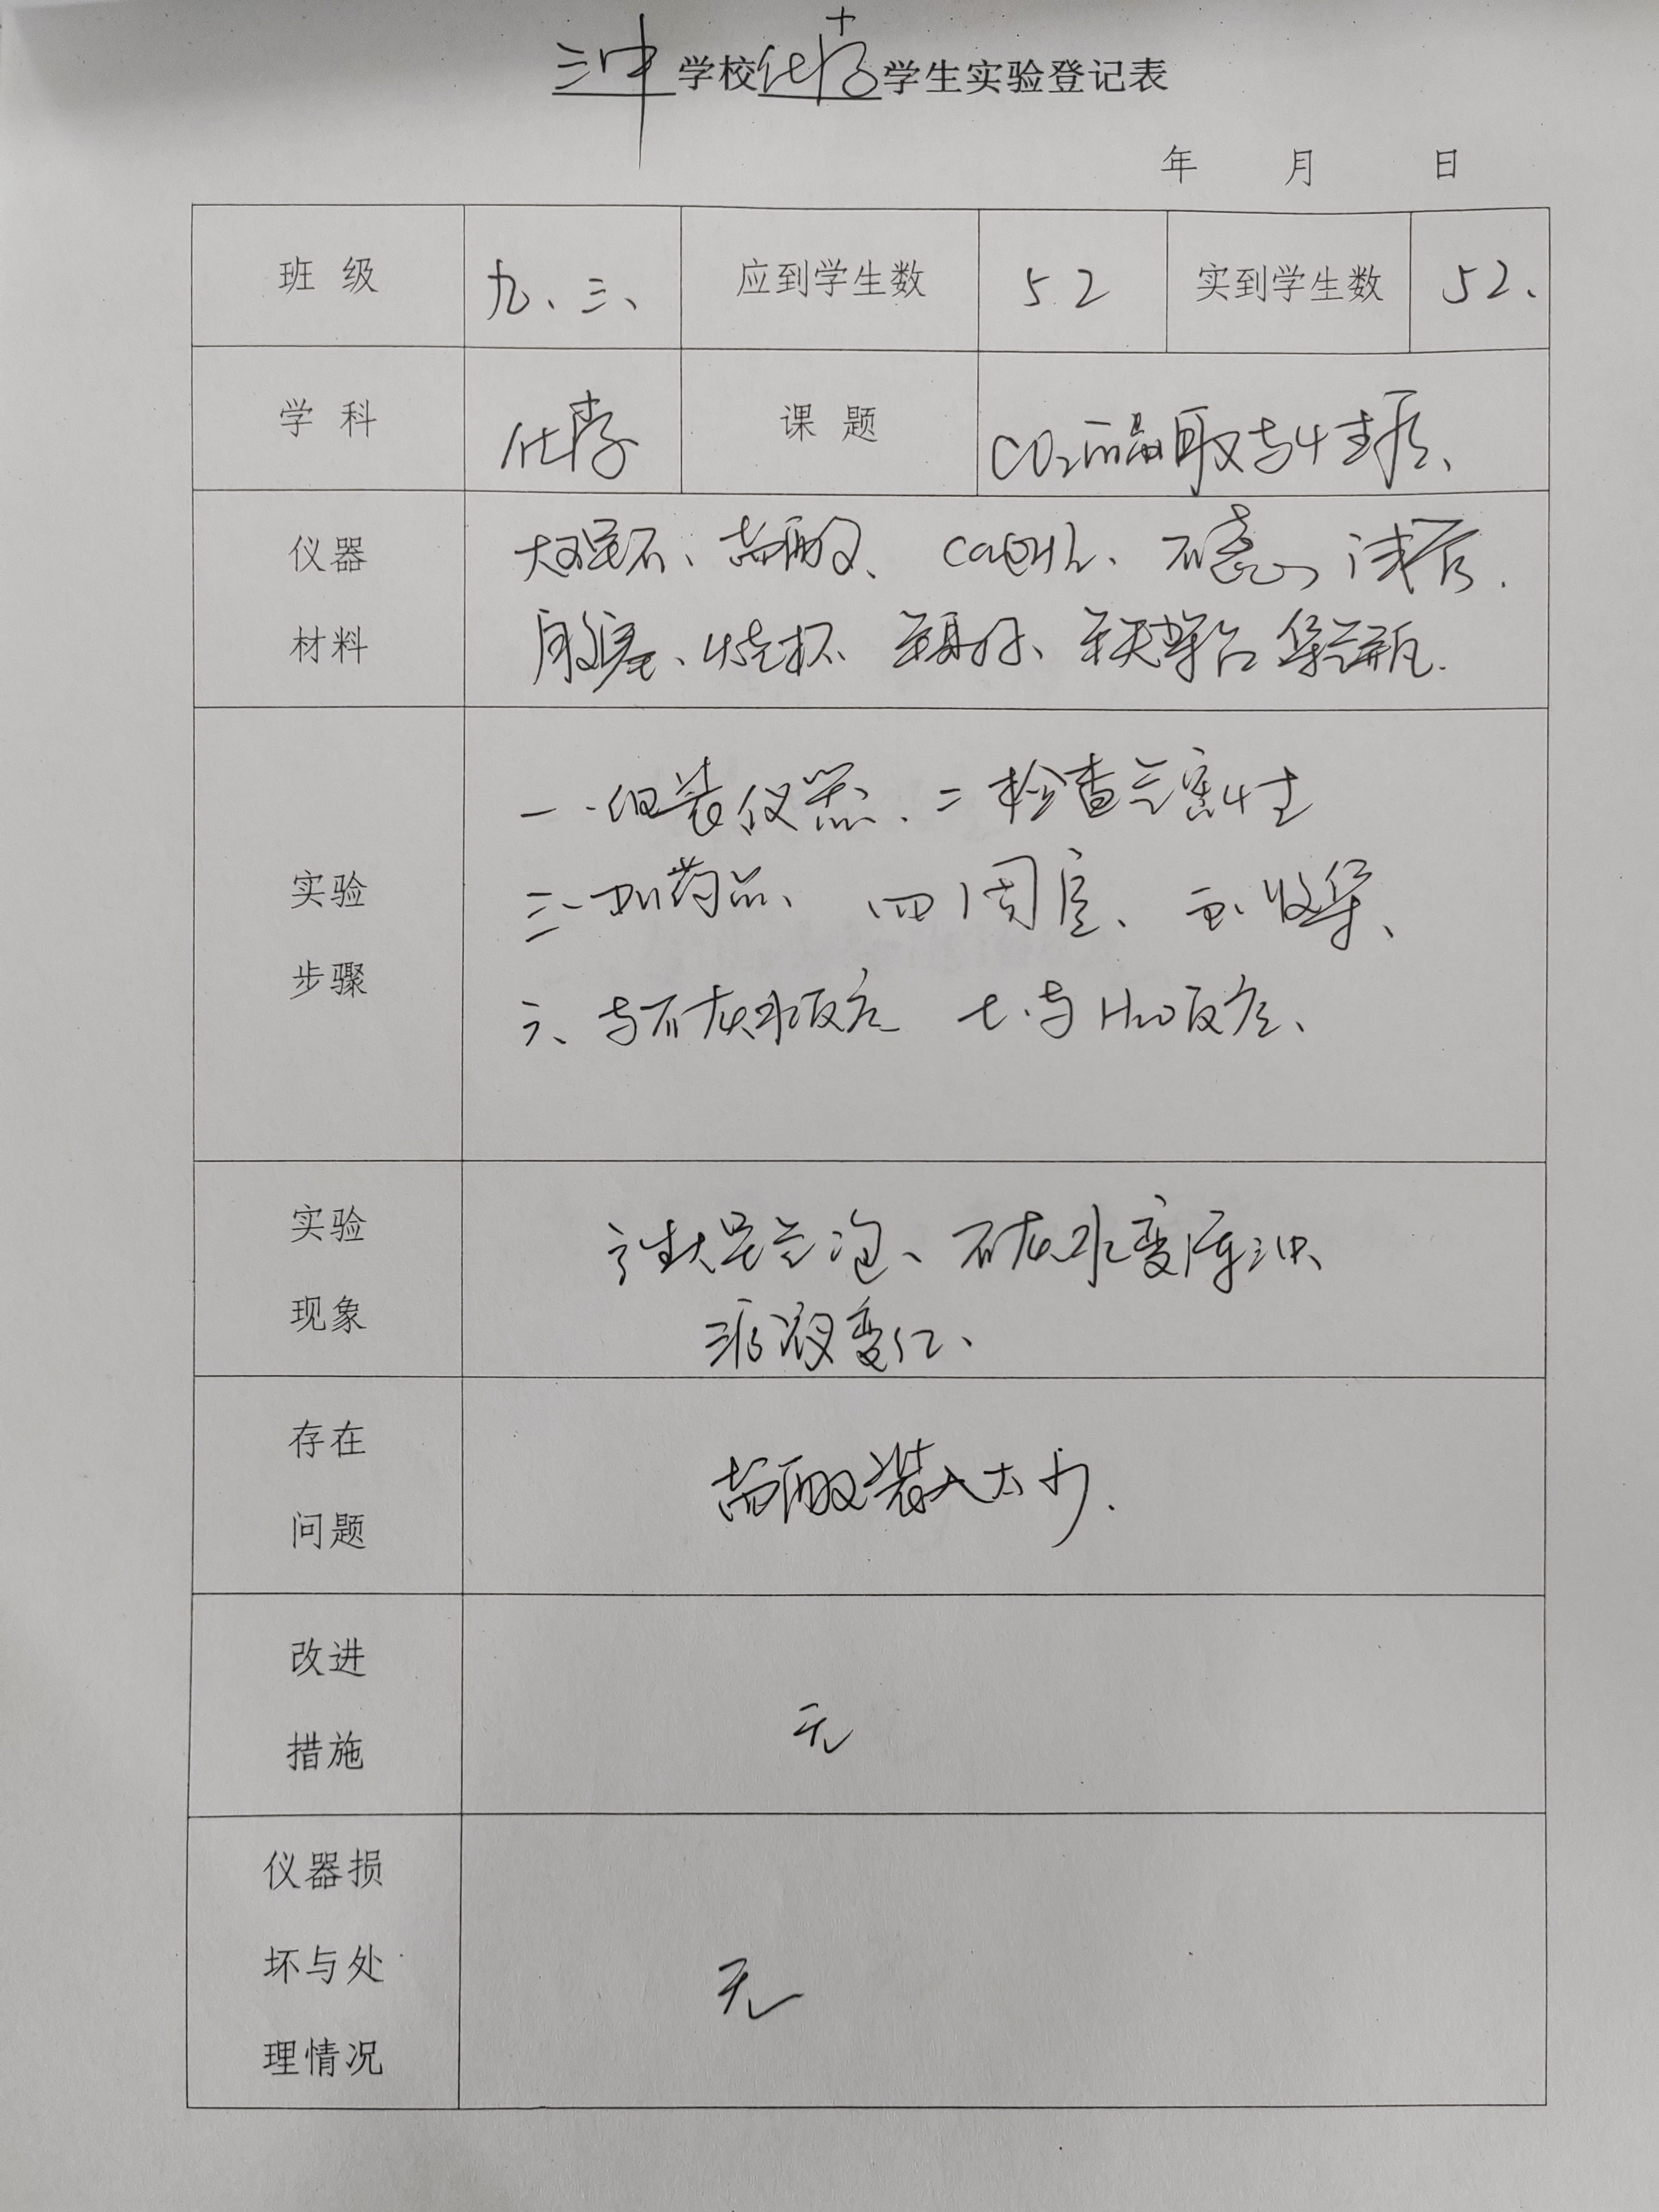 三中学校化学学生实验登记表
年 月 日
班 级 九、三、 应到学生数 52 实到学生数 52、
学 科 化学 课 题 CO₂的制取与性质、
仪器 大理石、盐酸、Ca(OH)₂、石蕊、试管.
材料 胶塞、烧杯、铁架台 集气瓶.
一.组装仪器、二 检查气密性
实验 三、加药品、四 固定、五、收集、
步骤
六、与石灰水反应 七、与H₂O反应、
实验 产生大量气泡、石灰水变浑浊、
现象 溶液变红、
存在
盐酸装入太少.
问题
改进
无
措施
仪器损
坏与处
无
理情况